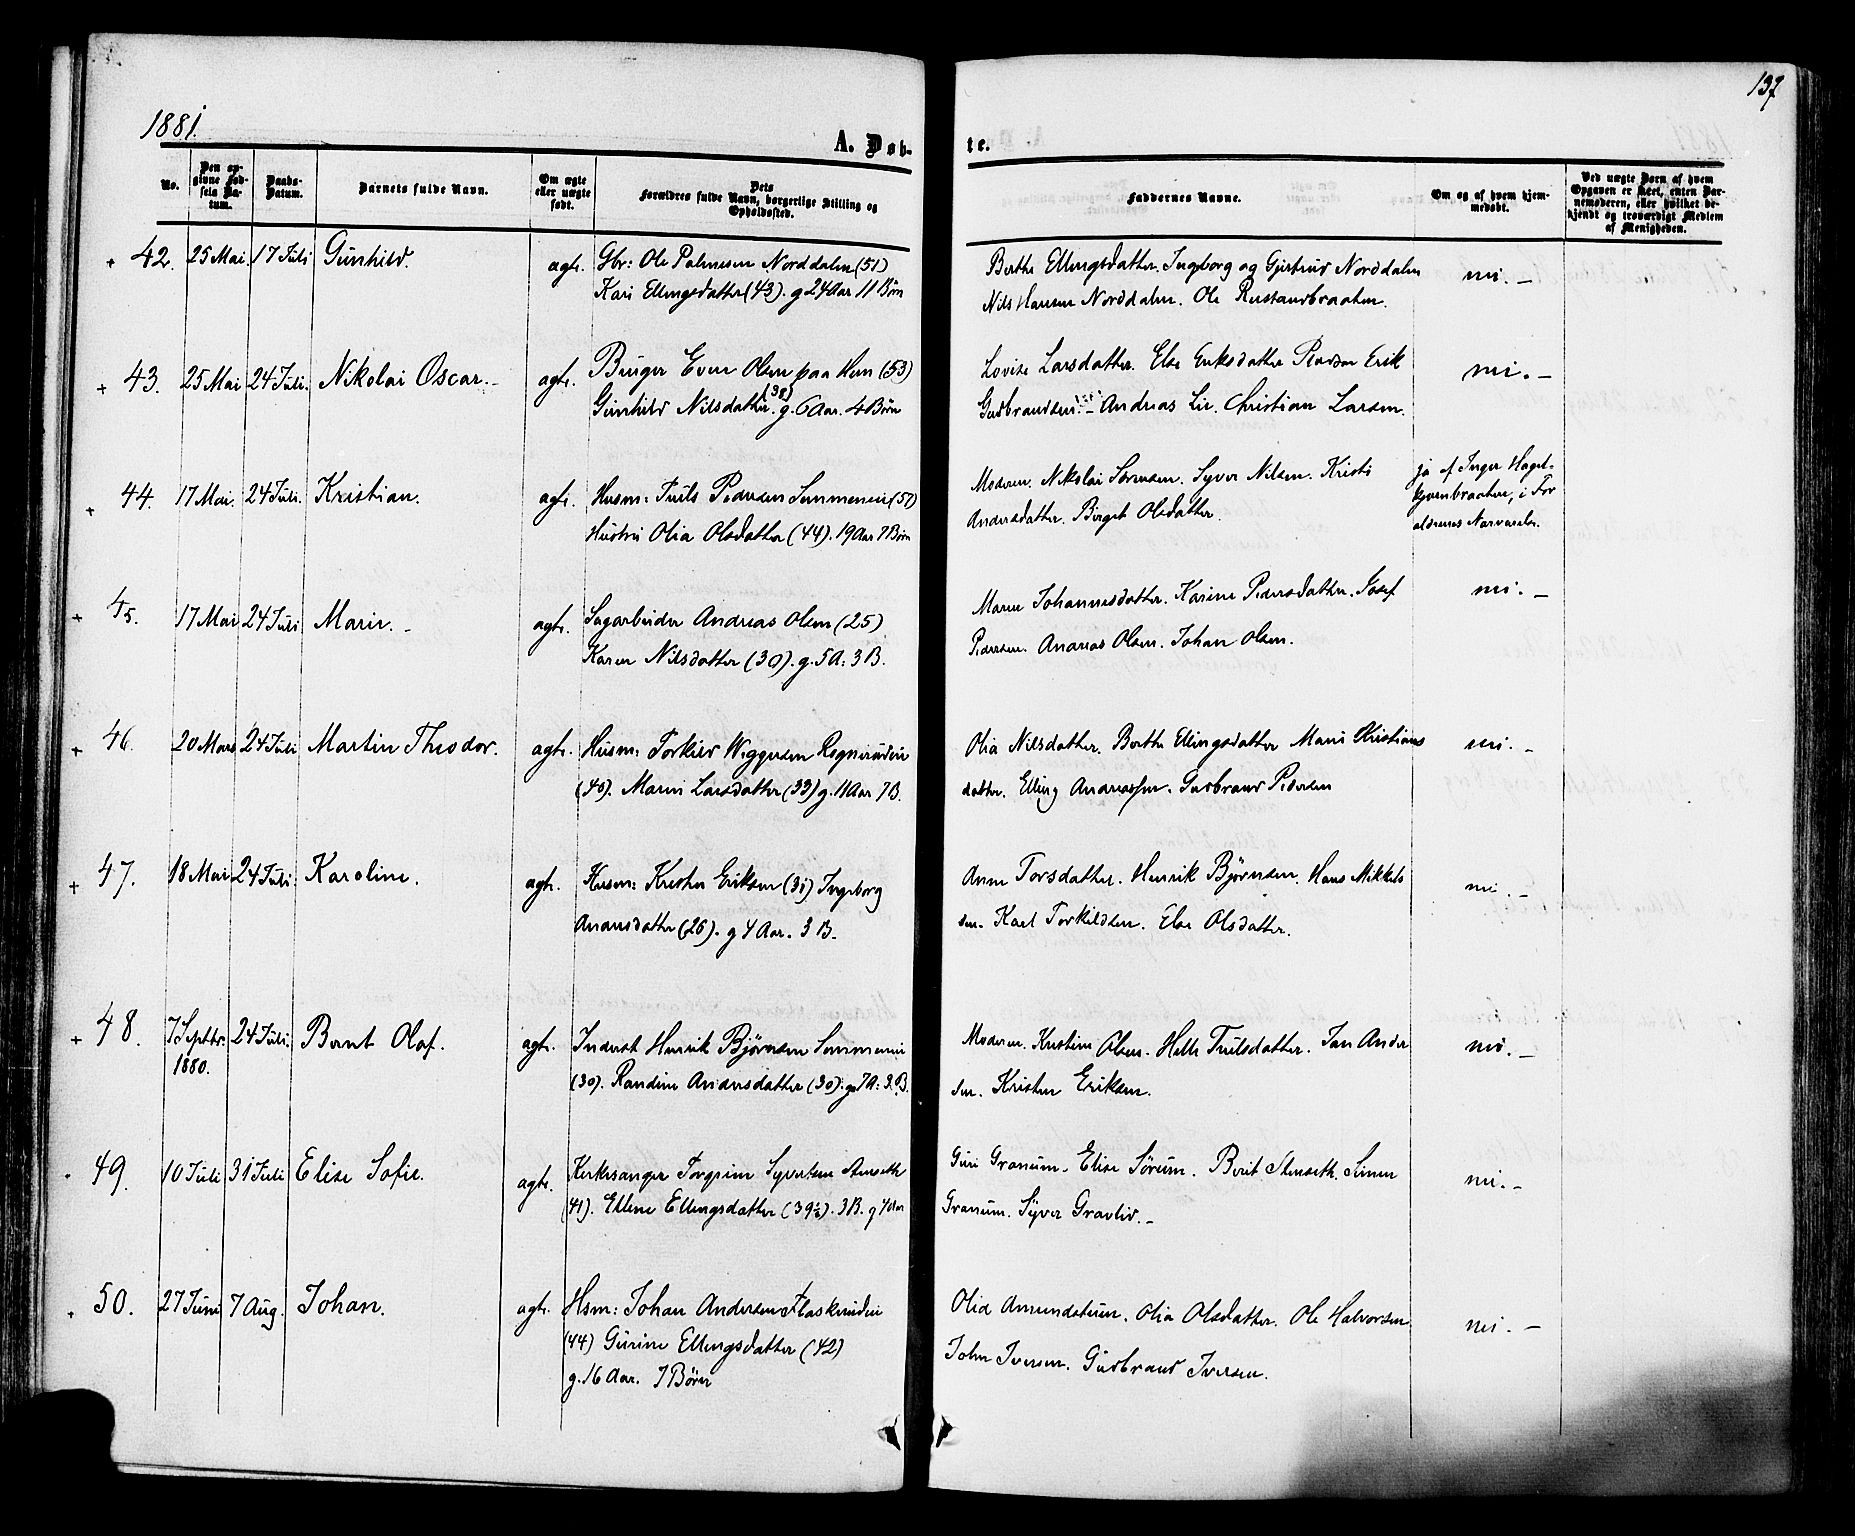 1881.
137
A. Døb-
te.
No.
Den op-
givne Fød-
sels Da-
tum.
Daabs-
Datum.
Barnets fulde Navn.
Om ægte
eller uægte
født.
Dets
Forældres fulde Navn, borgerlige Stilling og
Opholdssted.
Faddernes Navne.
Om og af hvem hjem-
medøbt.
Ved uægte Børn af hvem
Opgaven er skeet, enten Bar-
nemoderen, eller hvilket be-
kjendt og troværdigt Medlem
af Menigheden.
+ 42. 25 Mai. 17 Juli Gunhild. agte. Gbr: Ole Palmesen Norddalen (51) Berthe Ellingsdatter. Ingeborg og Gjertrud Norddalen nei. -
Kari Ellingsdatter (43). g 24 Aar 11 Børn Nils Hansen Norddalen. Ole Rustandbraaten.
+ 43. 25 Mai 24 Juli. Nikolai Oscar. - agte. Bruger Even Olsen paa Hem (53) Lovise Larsdatter. Else Eriksdatter Erik nei. -
Gunhild Nilsdatter (38). g. 6 Aar. 4 Børn Gudbrandsen. - Andreas Lie. Christian Larsen.
+ 44. 17 Mai. 24 Juli. Kristian. agte. Husm: Truls Pedersen Semmeneie Moderen. Nikolai Sørensen. Syver Nilsen. Kristi ja af Inger
Hustru Olia Olsdatter (44). 19 Aar 7 Børn Andersdatter. Birget Olsdatter. i For
ældrenes Nærværelse.
+ 45. 17 Mai 24 Juli Marie. - agte. Sagarbeider Andreas Olsen (25) Maren Johannesdatter. Karine Pedersdatter. Josef nei. -
Karen Nilsdatter (30). g. 5 A: 3 B. Pedersen. Andreas Olsen. Johan Olsen.
+ 46. 20 Mars 24 Juli Martin Theodor. agte. Husm: Torkild Wiggersen Olia Nilsdatter. Berthe Ellingsdatter Marie Kristians nei. -
(40). Maren Larsdatter (33) g. 11 Aar 7 B. datter. Elling Andreassen. Gudbrand Pedersen
+ 47. 18 Mai 24 Juli. Karoline. agte. Husm: Kristen Eriksen (31) Ingeborg Anne Torsdatter. Henrik Bjørnsen. Hans Mikkels nei. -
Andersdatter (26). g 4 Aar. 3 B. sen. Karl Torkildsen. Else Olsdatter.
+ 48. 7 Septbr. 24 Juli. Bernt Olaf. agte. Inderst Henrik Bjørnsen Semmeneie Moderen. Kristine Olsen. Helle Trulsdatter. Jan Ander nei. -
1880. (30). Randine Andersdatter (30). g. 7 A: 3. B. sen. Kristen Eriksen.
49. 10 Juli 31 Juli Elise Sofie. agte. Kirkesanger Torgrim Syvertsen Stenseth Guri Granum. Elise Sørum. Berit Stenseth. Simen nei. -
(41). Ellene Ellingsdatter (39½). 3 B. g 4 Aar Granum. Syver Gravlid. -
+ 50. 27 Juni 7 Aug. Johan. agte. Hsm: Johan Andersen Flaskerudeie Olia Amundsteum. Olia Olsdatter. Ole Halvorsen. nei. -
(44) Gurine Ellingsdatter (42) John Iversen. Gudbrand Iversen.
g. 16 Aar. 7 Børn